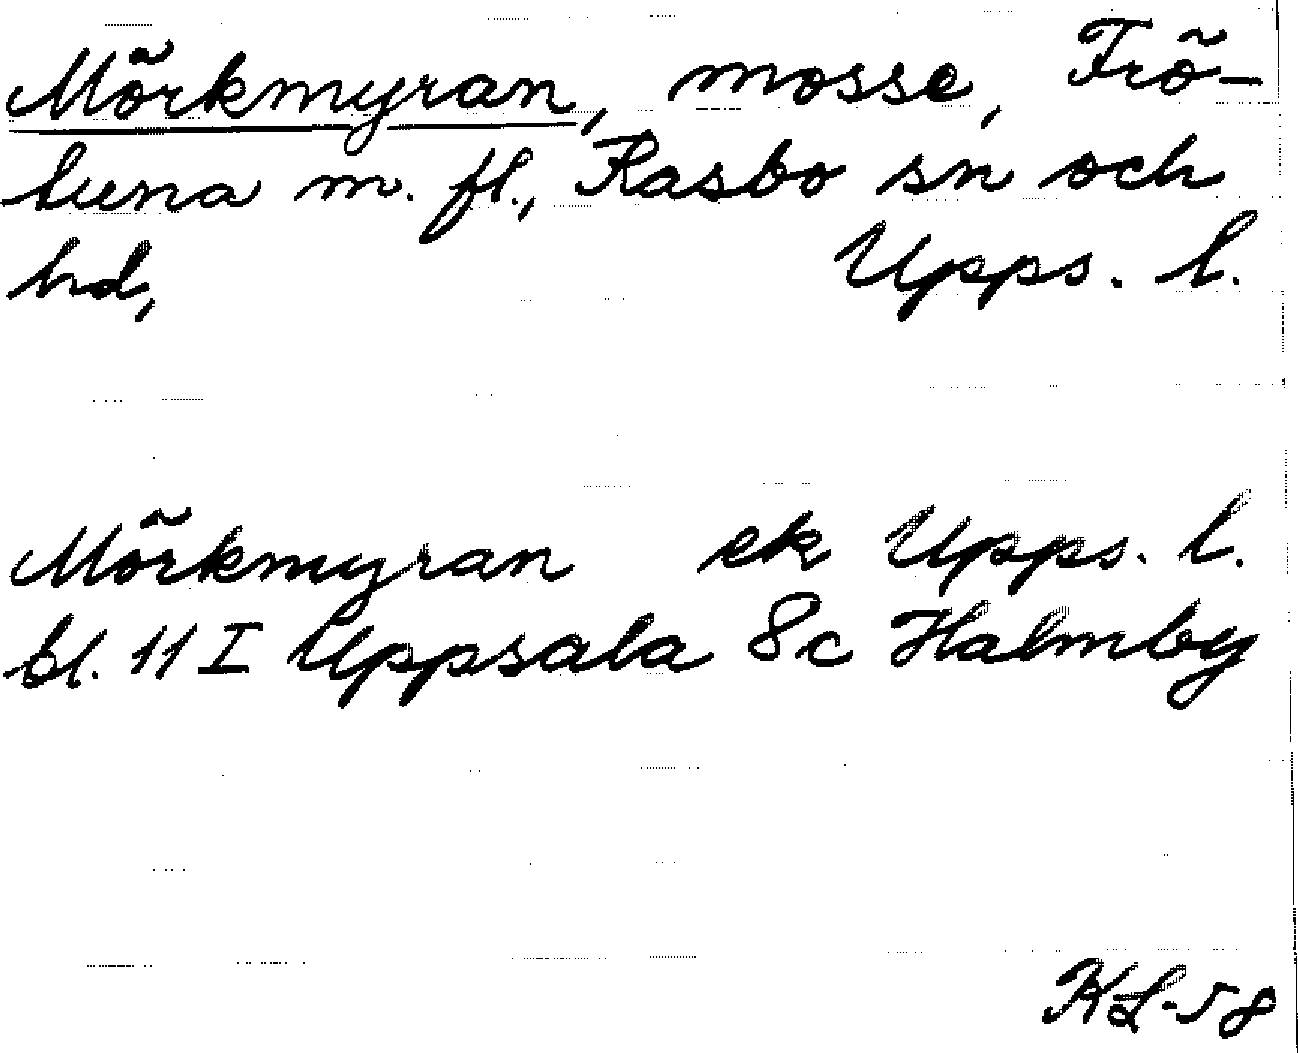 Mörkmyran, mosse, Frö-
luna m. fl., Rasbo sn och
hd, Upps. l.
Mörkmyran ek Upps. l.
bl. 11 I Uppsala 8c Halmby
KL-58